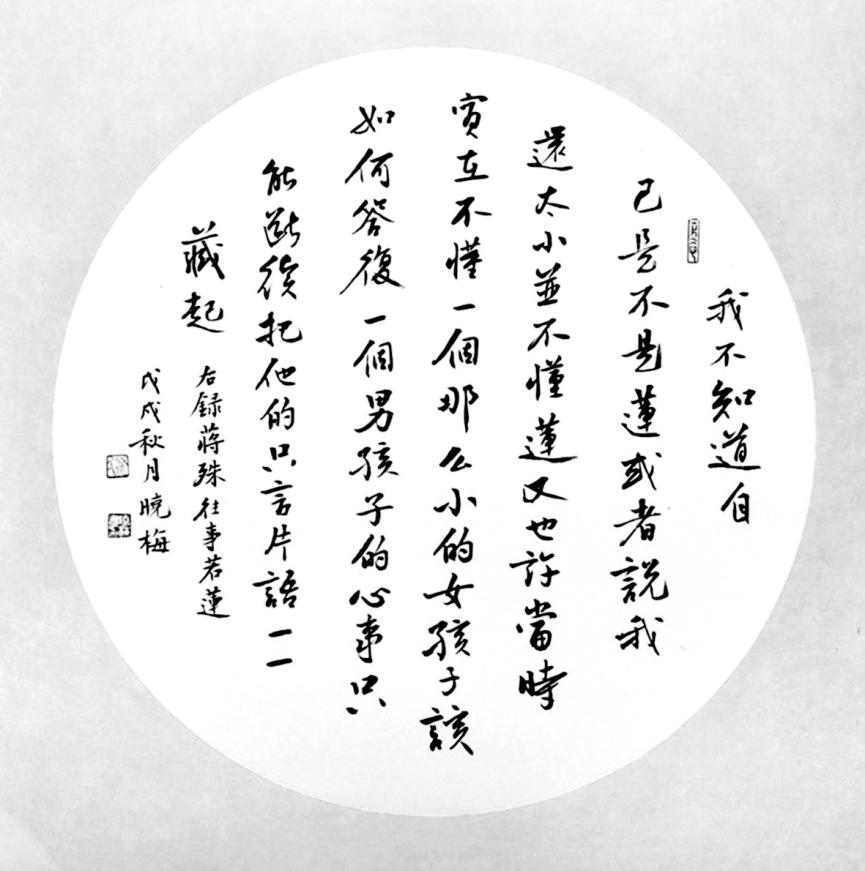 我不知道自
已是不是蓮或者説我
還太小並不懂蓮又也許當時
實在不懂一個那么小的女孩子該
如何答復一個男孩子的心事只
能斷續把他的只言片語一一
藏起
右録蔣殊往事若蓮
戊戌秋月曉梅